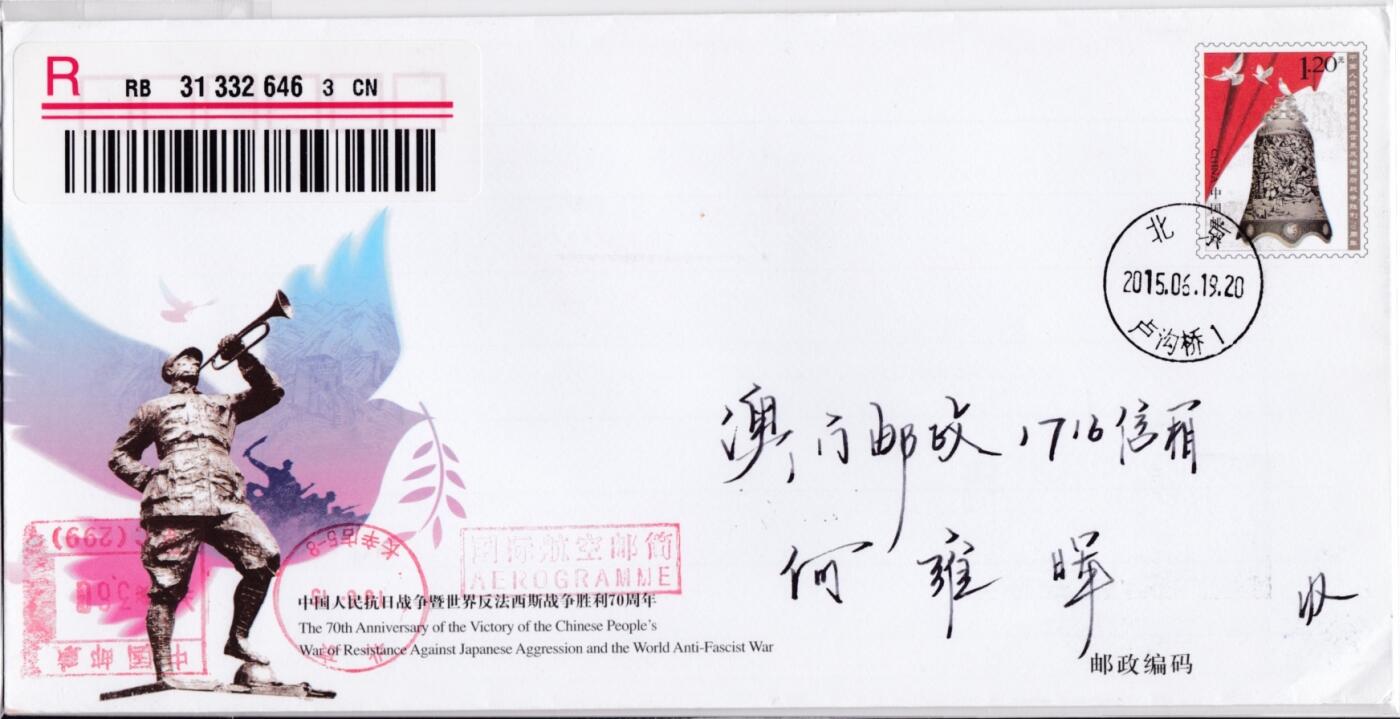 R
RB 31 332 646 3 CN
1.20元
中国人民抗日战争暨世界反法西斯战争胜利70周年
CHINA 中国邮政
北京
2015.06.19.20
卢沟桥1
澳门邮政1716信箱
何雍晖 收
(299)
中国邮政
长辛店5-8
北京
国际航空邮简
AEROGRAMME
中国人民抗日战争暨世界反法西斯战争胜利70周年
The 70th Anniversary of the Victory of the Chinese People's
War of Resistance Against Japanese Aggression and the World Anti-Fascist War
邮政编码